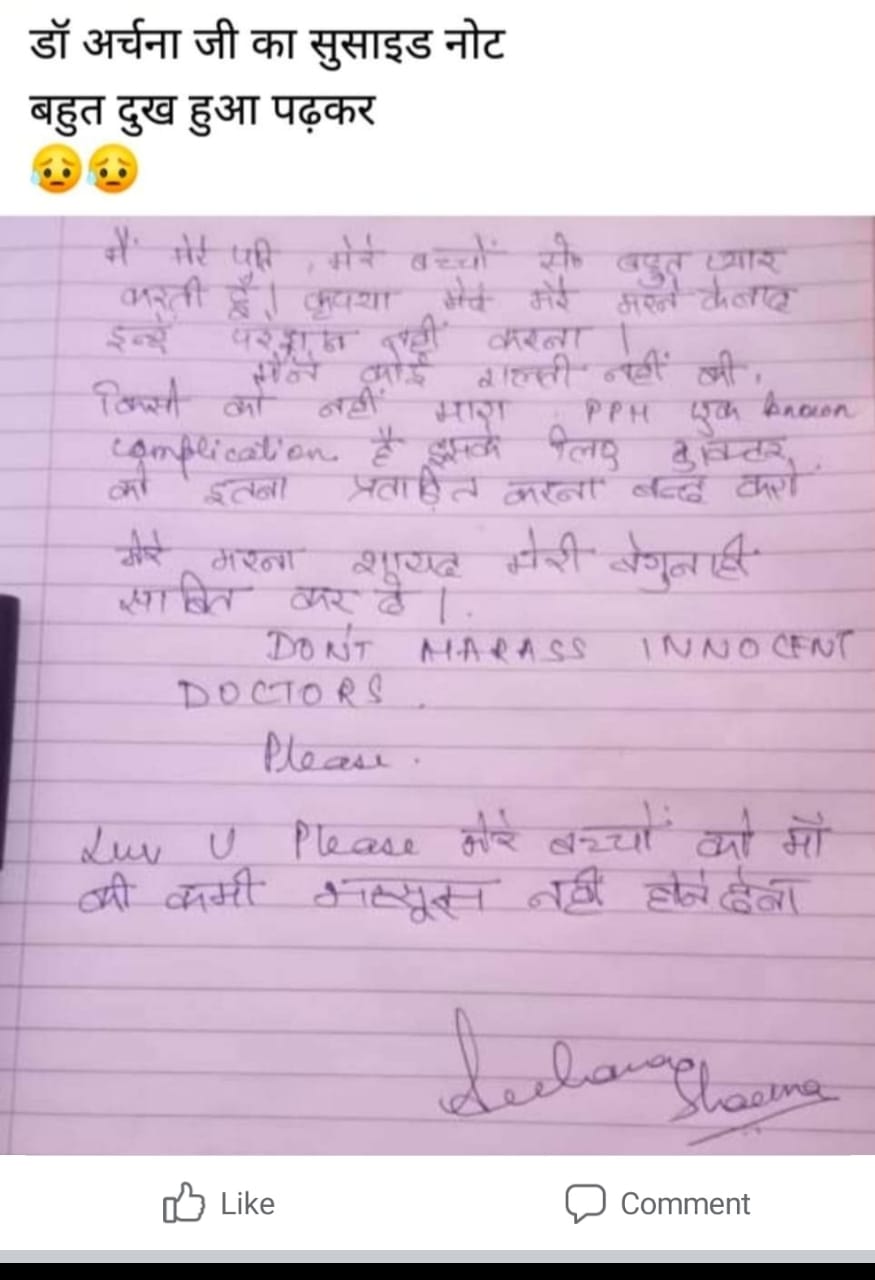 डॉ अर्चना जी का सुसाइड नोट
बहुत दुख हुआ पढ़कर
😥😥
मैं मेरे पति, मेरे बच्चों से बहुत प्यार
करती हूँ। कृपया मेरे मरने के बाद
इन्हें परेशान नहीं करना।
मैंने कोई गलती नहीं की,
किसी को नहीं मारा PPH एक known
complication है इसके लिए डॉक्टर
को इतना प्रताड़ित करना बन्द करो
मेरा मरना शायद मेरी बेगुनाही
साबित कर दे।
DON'T HARASS INNOCENT
DOCTORS.
Please.
Luv U Please मेरे बच्चों को माँ
की कमी महसूस नहीं होने देना
Archana
Sharma
Like
Comment